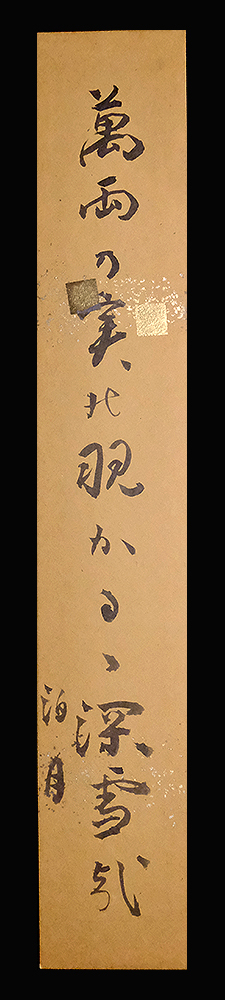 萬両の実の覗かるゝ深雪哉
泊月